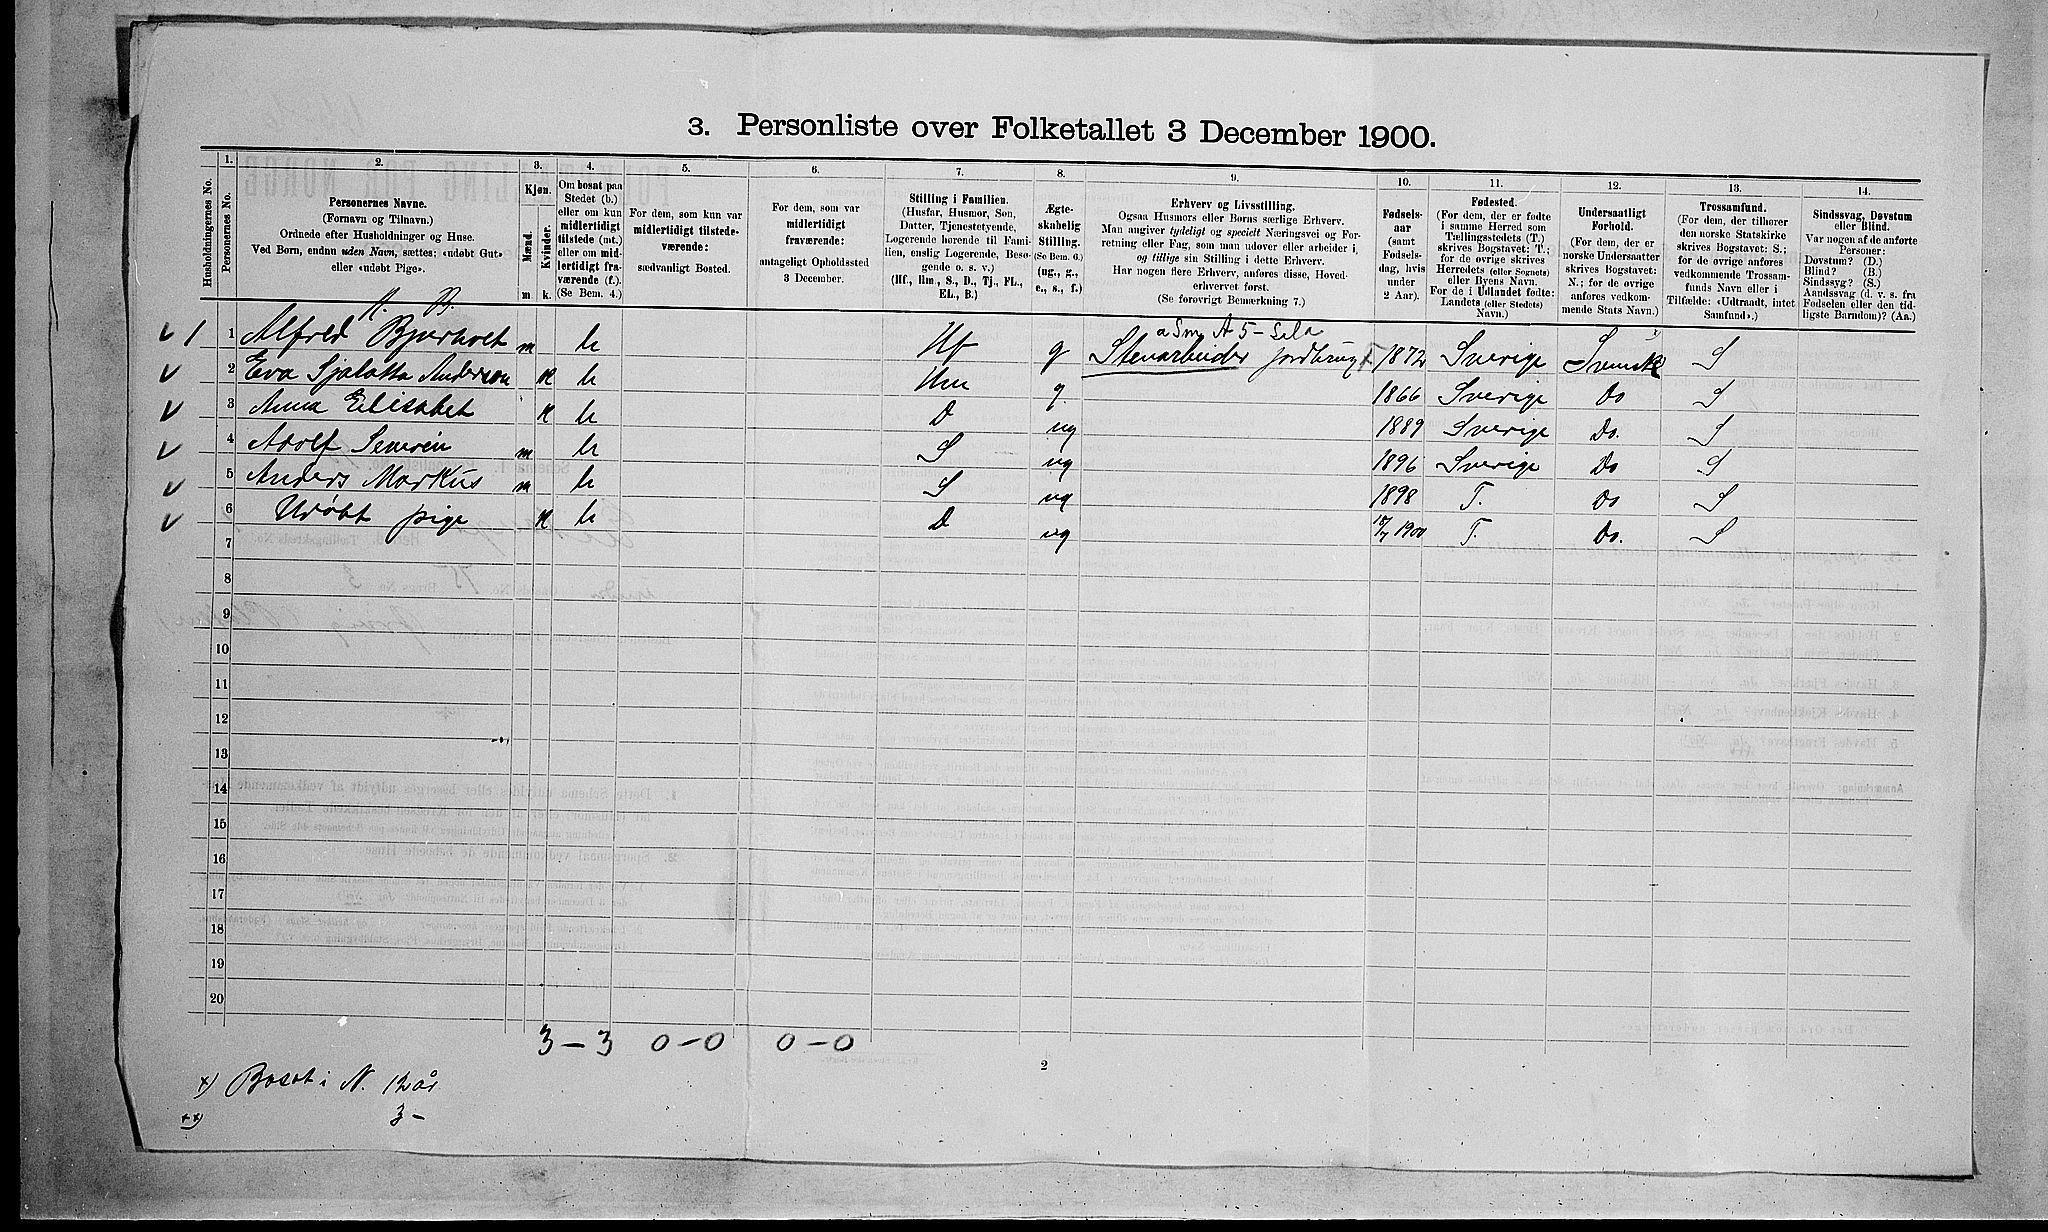 3. Personliste over Folketallet 3 December 1900.
Husholdningernes No.
1. Personernes No.
2. Personernes Navne.
(Fornavn og Tilnavn.)
Ordnede efter Husholdninger og Huse.
Ved Børn, endnu uden Navn, sættes: «udøbt Gut»
eller «udøbt Pige».
3. Kjøn.
Mænd. m
Kvinder. k.
4.
Om bosat paa
Stedet (b.)
eller om kun
midlertidigt
tilstede (mt.)
eller om mid-
lertidigt fra-
værende (f.).
(Se Bem. 4.)
5.
For dem, som kun var
midlertidigt tilstede-
værende:
sædvanligt Bosted.
6.
For dem, som var
midlertidigt
fraværende:
antageligt Opholdssted
3 December.
7.
Stilling i Familien.
(Husfar, Husmor, Søn,
Datter, Tjenestetyende,
Logerende hørende til Fami-
lien, enslig Logerende, Besø-
gende o. s. v.)
(Hf., Hm., S., D., Tj., FL.,
EL., B.)
8.
Ægte-
skabelig
Stilling.
(Se Bem. 6.)
(ug., g.,
e., s., f.)
9.
Erhverv og Livsstilling.
Ogsaa Husmors eller Børns særlige Erhverv.
Man angiver tydeligt og specielt Næringsvei og For-
retning eller Fag, som man udøver eller arbeider i,
og tillige sin Stilling i dette Erhverv.
Har nogen flere Erhverv, anføres disse, Hoved-
erhvervet først.
(Se forøvrigt Bemærkning 7.)
10.
Fødsels-
aar
(samt
Fødsels-
dag, hvis
under
2 Aar).
11.
Fødested.
(For dem, der er fødte
i samme Herred som
Tællingsstedets (T.)
skrives Bogstavet: T.;
for de øvrige skrives
Herredets (eller Sognets)
eller Byens Navn.
For de i Udlandet fødte:
Landets (eller Stedets)
Navn.)
12.
Undersaatligt
Forhold.
(For dem, der er
norske Undersaatter
skrives Bogstavet:
N.; for de øvrige
anføres vedkom-
mende Stats Navn.)
13.
Trossamfund.
(For dem, der tilhører
den norske Statskirke
skrives Bogstavet: S.;
for de øvrige anføres
vedkommende Trossam-
funds Navn eller i
Tilfælde: «Udtraadt, intet
Samfund».)
14.
Sindssvag, Døvstum
eller Blind.
Var nogen af de anførte
Personer:
Døvstum? (D.)
Blind? (B.)
Sindssyg? (S.)
Aandssvag (d. v. s. fra
Fødselen eller den tid-
ligste Barndom)? (Aa.)
A. B.
1 1 Alfred m b Hf g Stenarbeider jordbrug 1872 Sverige Svensk S
2 Eva Sjalatta Anderson K b Hm g. 1866 Sverige Do S
3 Anna Elisabet K b D ug 1889 Sverige Do. S
4 Adolf Severin m b S ug 1896 Sverige Do S
5 Anders Markus m b S ug 1898 T. Do S
6 Udøbt pige K b D ug 1900 T. Do. S
7
8
9
10
11
12
13
14
15
16
17
18
19
20
3 – 3 0 – 0 0 – 0
2
x) Bosat i N. 12 år
xx) 3 –